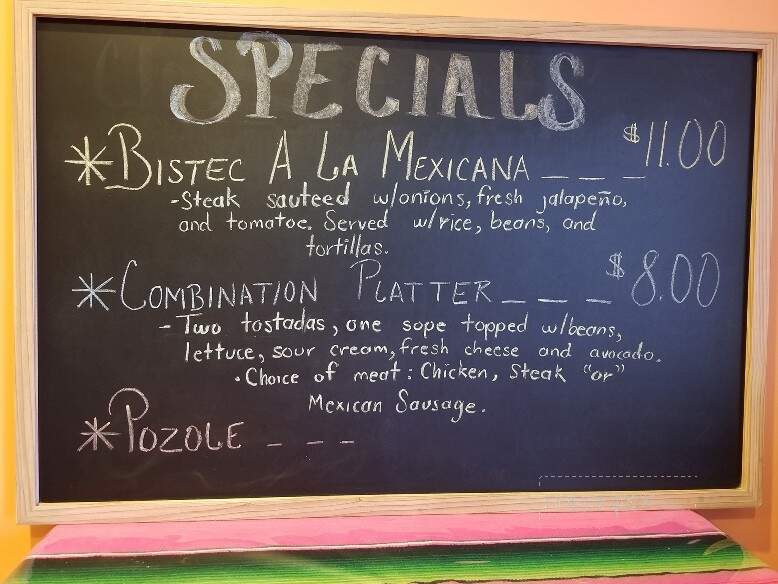 SPECIALS
*BISTEC A LA MEXICANA _ _ _ $11.00
-Steak sauteed w/onions, fresh jalapeño,
and tomatoe. Served w/rice, beans, and
tortillas.
*COMBINATION PLATTER _ _ _ _ $8.00
- Two tostadas, one sope topped w/beans,
lettuce, sour cream, fresh cheese and avocado.
• Choice of meat: Chicken, Steak "or"
Mexican Sausage.
*POZOLE _ _ _